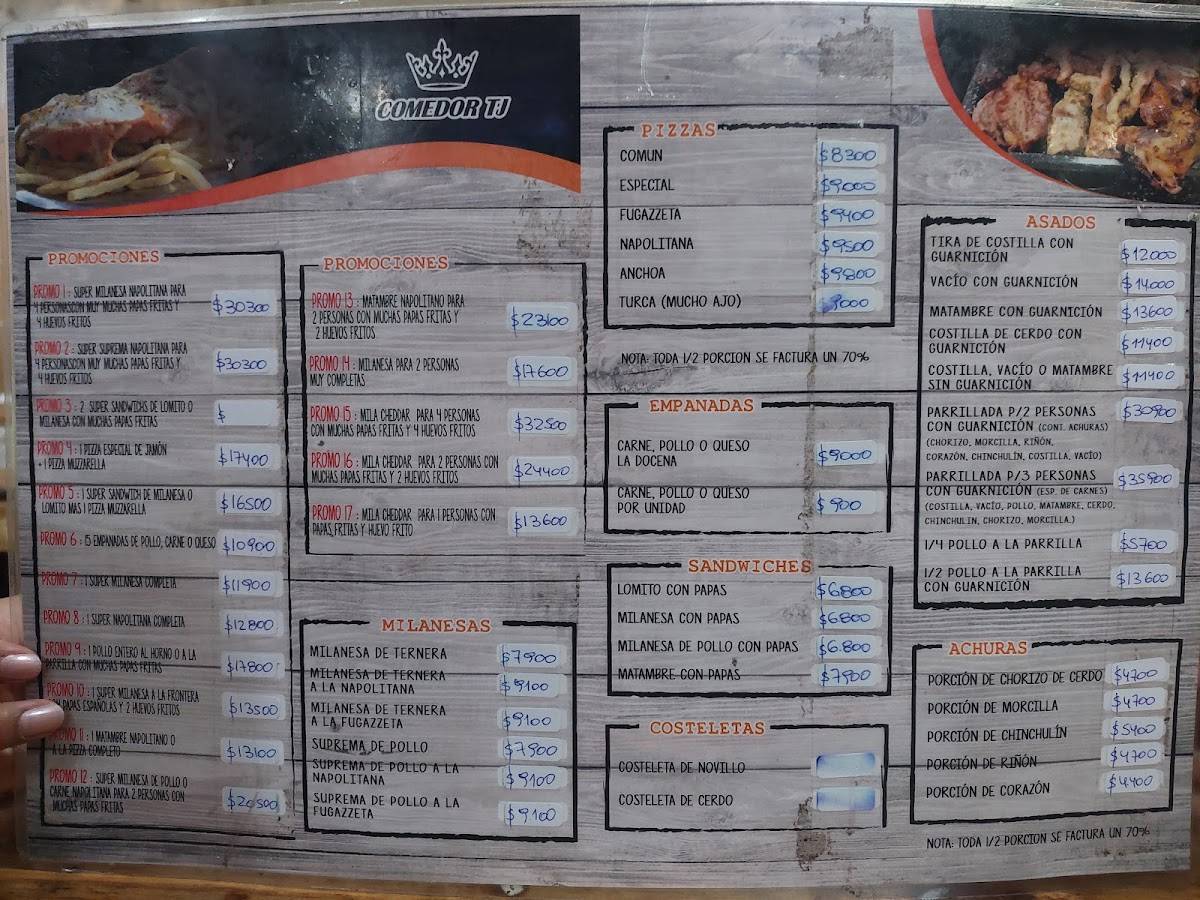 COMEDOR TJ
PROMOCIONES
PROMO 1 : SUPER MILANESA NAPOLITANA PARA
4 PERSONASCON MUY MUCHAS PAPAS FRITAS Y
4 HUEVOS FRITOS
$30300
PROMO 2 : SUPER SUPREMA NAPOLITANA PARA
4 PERSONASCON MUY MUCHAS PAPAS FRITAS Y
4 HUEVOS FRITOS
$30300
PROMO 3 : 2 SUPER SANDWICHS DE LOMITO O
MILANESA CON MUCHAS PAPAS FRITAS
$
PROMO 4 : 1 PIZZA ESPECIAL DE JAMÓN
+ 1 PIZZA MUZZARELLA
$17400
PROMO 5 : 1 SUPER SANDWICH DE MILANESA O
LOMITO MAS 1 PIZZA MUZZARELLA
$16500
PROMO 6 : 15 EMPANADAS DE POLLO, CARNE O QUESO
$10900
PROMO 7 : 1 SUPER MILANESA COMPLETA
$11900
PROMO 8 : 1 SUPER NAPOLITANA COMPLETA
$12800
PROMO 9 : 1 POLLO ENTERO AL HORNO O A LA
PARRILLA CON MUCHAS PAPAS FRITAS
$17800
PROMO 10 : 1 SUPER MILANESA A LA FRONTERA
PAPAS ESPAÑOLAS Y 2 HUEVOS FRITOS
$13500
PROMO 11 : 1 MATAMBRE NAPOLITANO O
A LA PIZZA COMPLETO
$13100
PROMO 12 : SUPER MILANESA DE POLLO O
CARNE NAPOLITANA PARA 2 PERSONAS CON
MUCHAS PAPAS FRITAS
$20500
PROMOCIONES
PROMO 13 : MATAMBRE NAPOLITANO PARA
2 PERSONAS CON MUCHAS PAPAS FRITAS Y
2 HUEVOS FRITOS
$23100
PROMO 14 : MILANESA PARA 2 PERSONAS
MUY COMPLETAS
$17600
PROMO 15 : MILA CHEDDAR PARA 4 PERSONAS
CON MUCHAS PAPAS FRITAS Y 4 HUEVOS FRITOS
$32500
PROMO 16 : MILA CHEDDAR PARA 2 PERSONAS CON
MUCHAS PAPAS FRITAS Y 2 HUEVOS FRITOS
$24400
PROMO 17 : MILA CHEDDAR PARA 1 PERSONAS CON
PAPAS FRITAS Y HUEVO FRITO
$13600
MILANESAS
MILANESA DE TERNERA
$7900
MILANESA DE TERNERA
A LA NAPOLITANA
$9100
MILANESA DE TERNERA
A LA FUGAZZETA
$9100
SUPREMA DE POLLO
$7900
SUPREMA DE POLLO A LA
NAPOLITANA
$9100
SUPREMA DE POLLO A LA
FUGAZZETA
$9100
PIZZAS
COMUN $8300
ESPECIAL $9000
FUGAZZETA $9400
NAPOLITANA $9500
ANCHOA $9800
TURCA (MUCHO AJO) 9000
NOTA: TODA 1/2 PORCION SE FACTURA UN 70%
EMPANADAS
CARNE, POLLO O QUESO
LA DOCENA
$9000
CARNE, POLLO O QUESO
POR UNIDAD
$900
SANDWICHES
LOMITO CON PAPAS $6800
MILANESA CON PAPAS $6800
MILANESA DE POLLO CON PAPAS $6.800
MATAMBRE CON PAPAS $7900
COSTELETAS
COSTELETA DE NOVILLO
COSTELETA DE CERDO
ASADOS
TIRA DE COSTILLA CON
GUARNICIÓN
$12000
VACÍO CON GUARNICIÓN $14000
MATAMBRE CON GUARNICIÓN $13600
COSTILLA DE CERDO CON
GUARNICIÓN
$11400
COSTILLA, VACÍO O MATAMBRE
SIN GUARNICIÓN
$11400
PARRILLADA P/2 PERSONAS
CON GUARNICIÓN (CONT. ACHURAS)
(CHORIZO, MORCILLA, RIÑÓN,
CORAZÓN, CHINCHULÍN, COSTILLA, VACÍO)
$30900
PARRILLADA P/3 PERSONAS
CON GUARNICIÓN (ESP. DE CARNES)
(COSTILLA, VACÍO, POLLO, MATAMBRE, CERDO,
CHINCHULIN, CHORIZO, MORCILLA.)
$35900
1/4 POLLO A LA PARRILLA $5700
1/2 POLLO A LA PARRILLA
CON GUARNICIÓN
$13600
ACHURAS
PORCIÓN DE CHORIZO DE CERDO $4700
PORCIÓN DE MORCILLA $4700
PORCIÓN DE CHINCHULÍN $5400
PORCIÓN DE RIÑÓN $4700
PORCIÓN DE CORAZÓN $4400
NOTA: TODA 1/2 PORCION SE FACTURA UN 70%